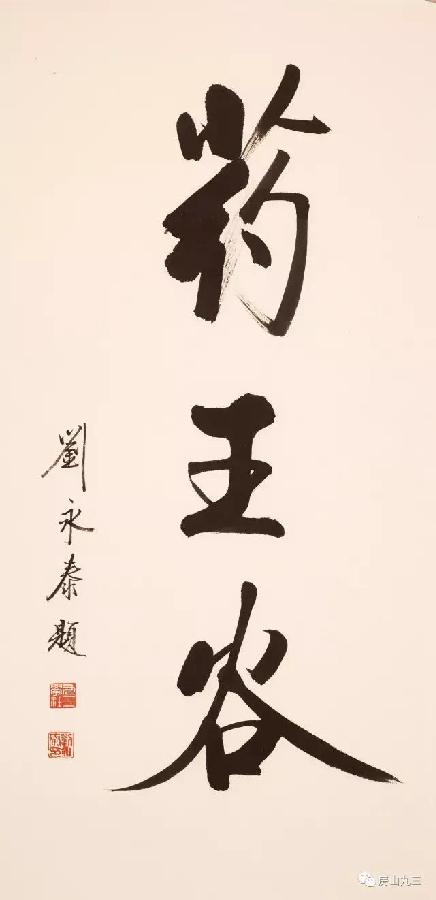 药王谷
劉永泰題
房山九三